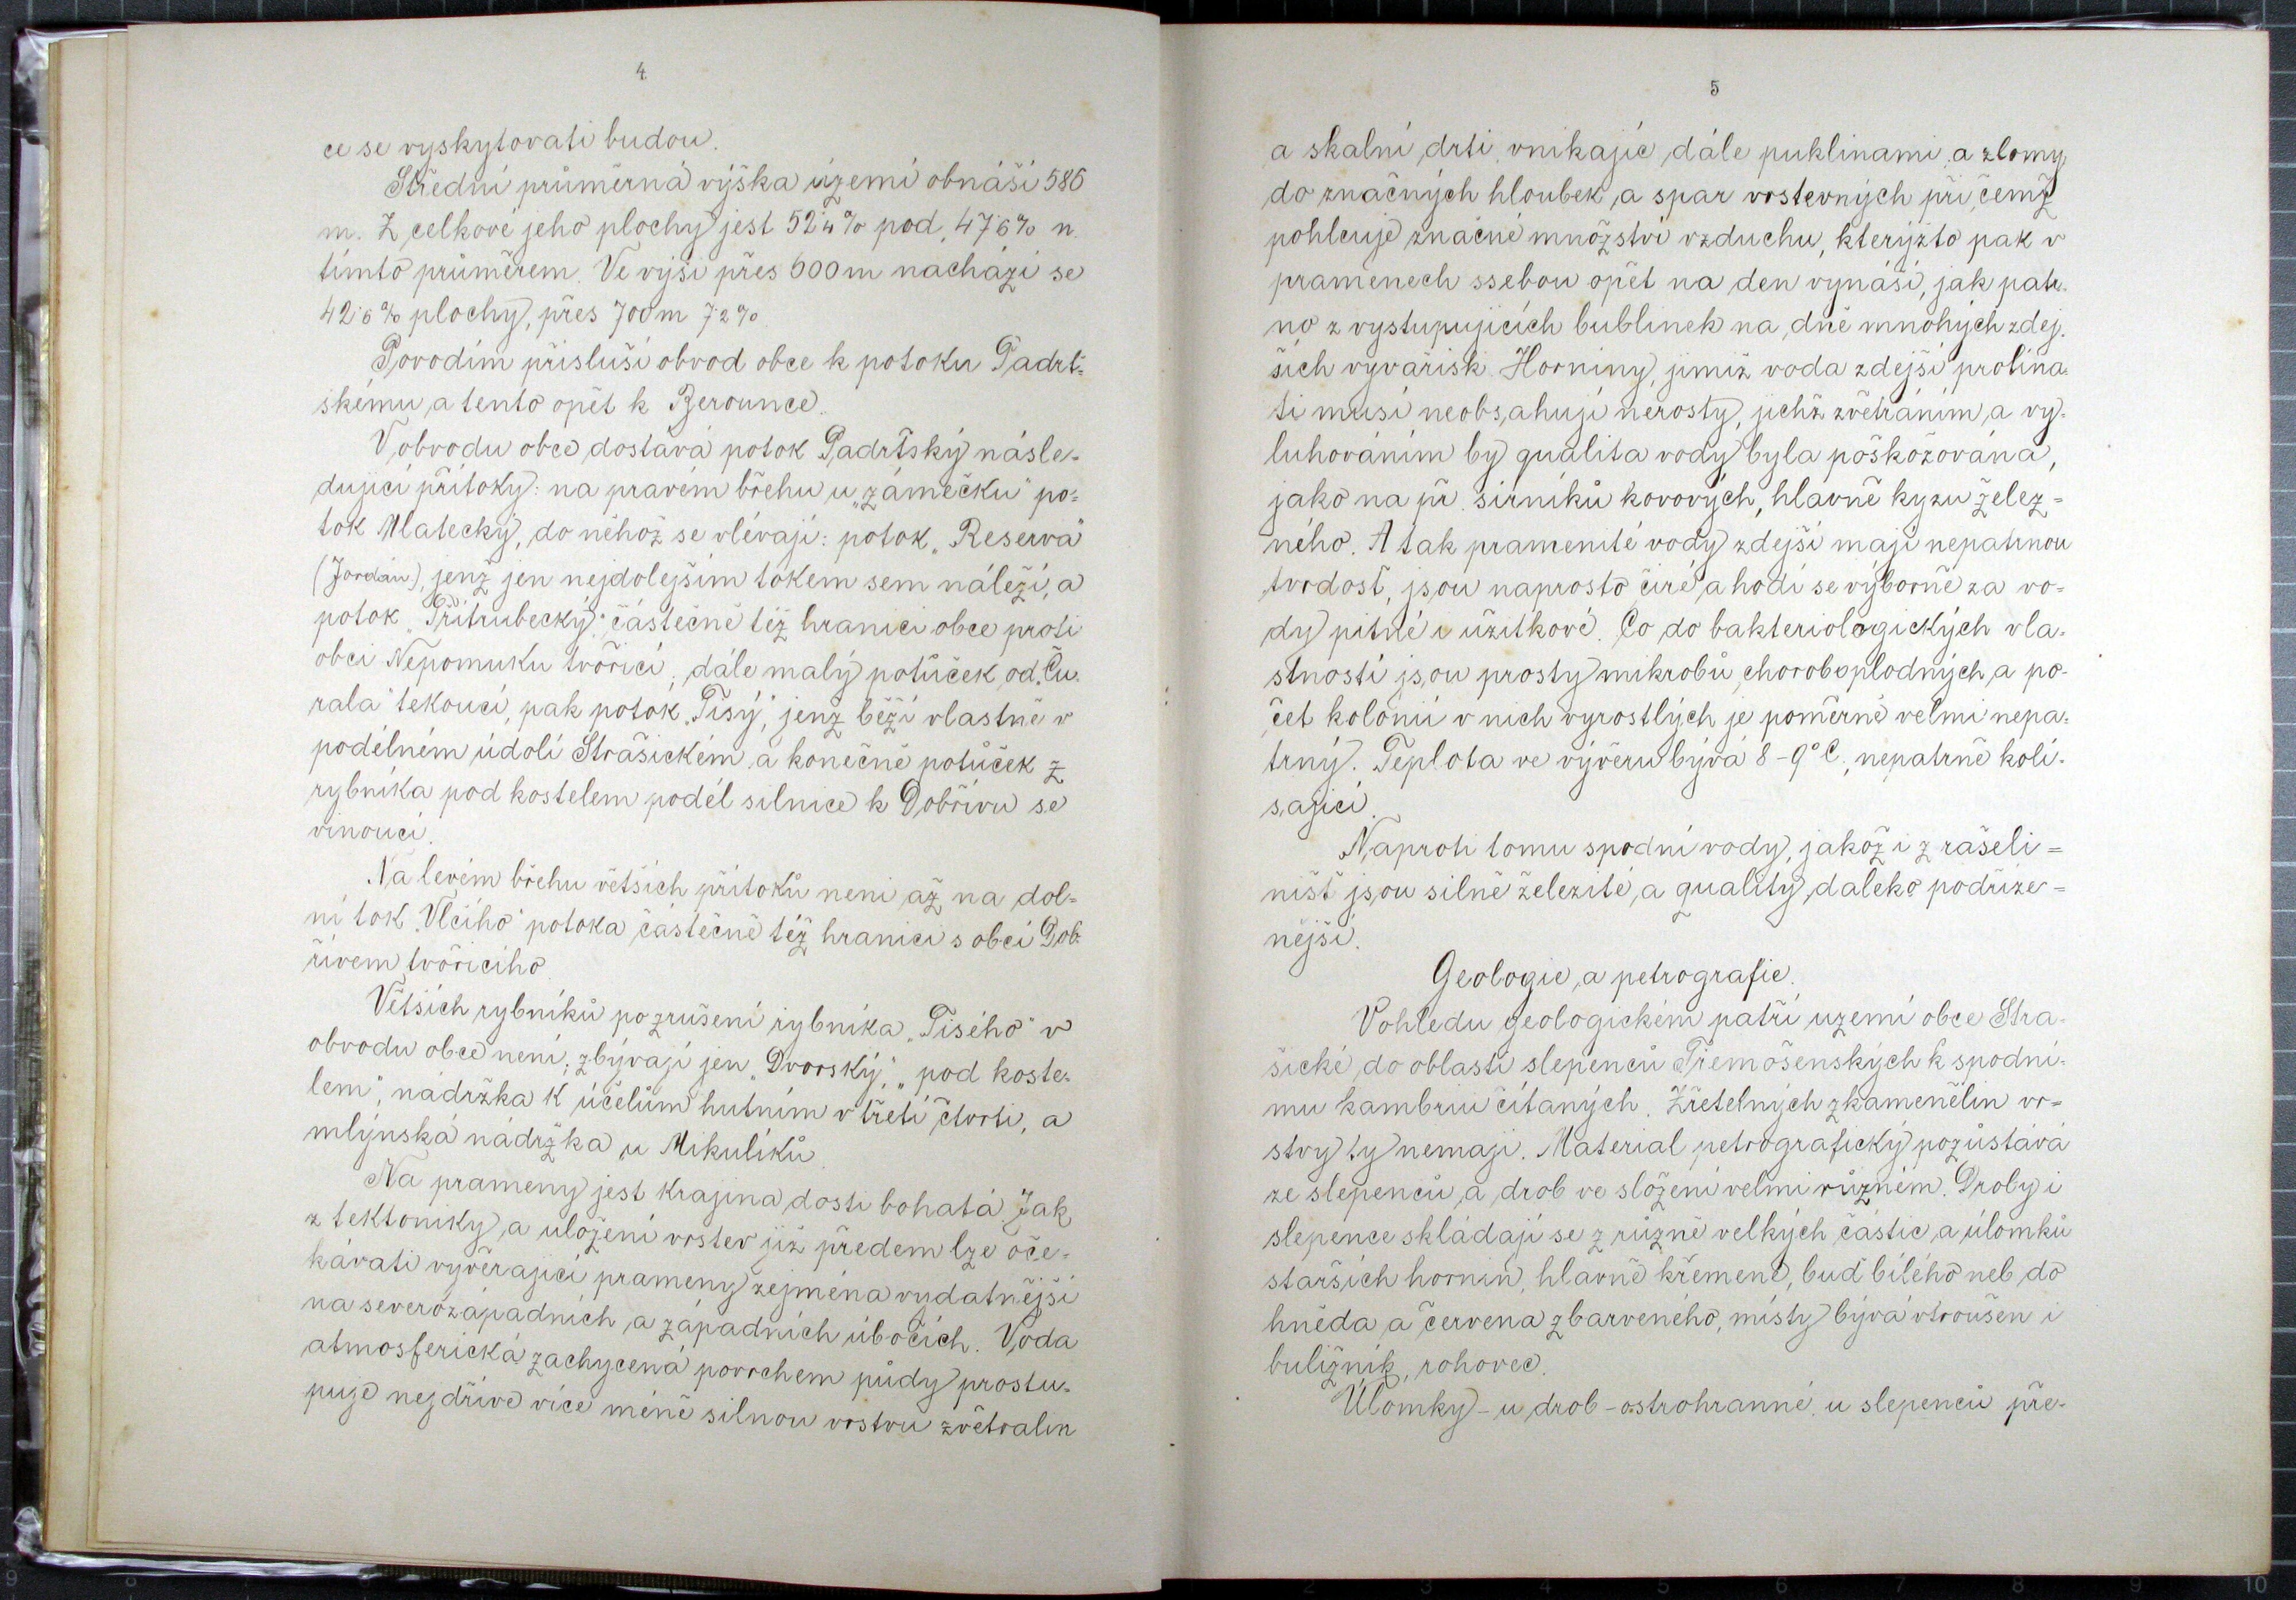 4.
ce se vyskytovati budou.
Střední průměrná výška území obnáší 586
m. Z celkové jeho plochy jest 52·4% pod, 47·6% n.
tímto průměrem. Ve výši přes 600 m nachází se
42·6% plochy, přes 700 m 7·2%.
Povodím přísluší obvod obce k potoku Padrť=
skému a tento opět k Berounce.
V obvodu obce dostává potok Padrťský násle-
dující přítoky: na pravém břehu u „zámečku" po=
tok Mlatecký, do něhož se vlévají: potok „Reserva"
(Jordán), jenž jen nejdolejším tokem sem náleží, a
potok „Přítrubecký" částečně též hranici obce proti
obci Nepomuku tvořící; dále malý potůček od „Ču-
rala" tekoucí, pak potok „Tisý", jenž běží vlastně v
podélném údolí Strašickém a konečně potůček z
rybníka pod kostelem podél silnice k Dobřívu se
vinoucí.
Na levém břehu větších přítoků není až na dol=
ní tok „Vlčího" potoka částečně též hranici s obcí Dob-
řívem tvořícího.
Větších rybníků po zrušení rybníka „Tisého" v
obvodu obce není; zbývají jen „Dvorský", „pod koste-
lem", nádržka k účelům hutním v třetí čtvrti, a
mlýnská nádržka u Mikulíků.
Na prameny jest krajina dosti bohatá. Jak
z tektoniky a uložení vrstev již předem lze oče-
kávati vyvěrající prameny zejména vydatnější
na severozápadních a západních úbočích. Voda
atmosferická zachycená povrchem půdy prostu-
puje nejdříve více méně silnou vrstvu zvětralin
5
a skalní drti, vnikajíc dále puklinami a zlomy
do značných hloubek a spar vrstevných při čemž
pohlcuje značné množství vzduchu, kterýžto pak v
pramenech ssebou opět na den vynáší, jak patr-
no z vystupujících bublinek na dně mnohých zdej-
ších vyvařisk. Horniny, jimiž voda zdejší prolína-
ti musí neobsahují nerosty, jichž zvětráním a vy-
luhováním by qualita vody byla poškozována,
jako na př. sirníků kovových, hlavně kyzu želez=
ného. A tak pramenité vody zdejší mají nepatrnou
tvrdosť, jsou naprosto čiré a hodí se výborně za vo-
dy pitné i užitkové. Co do bakteriologických vla-
stností jsou prosty mikrobů choroboplodných a po-
čet kolonií v nich vyrostlých je poměrně velmi nepa-
trný. Teplota ve vývěru bývá 8-9° C., nepatrně kolí-
sající.
Naproti tomu spodní vody, jakož i z rašeli=
nišť jsou silně železité, a quality daleko podříze=
nější.
Geologie a petrografie.
V ohledu geologickém patří uzemí obce Stra-
šické do oblasti slepenců Třemošenských k spodní-
mu kambriu čítaných. Zřetelných zkamenělin vr=
stvy ty nemají. Material petrografický pozůstává
ze slepenců a drob ve složení velmi různém. Droby i
slepence skládají se z různě velkých částic a úlomků
starších hornin, hlavně křemene, buď bílého neb do
hněda a červena zbarveného, místy bývá vtroušen i
buližník, rohovec.
Úlomky - u drob - ostrohranné, u slepenců pře-